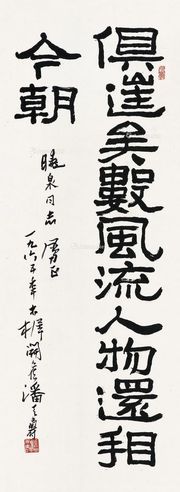 俱往矣數風流人物還看
今朝
泉同志屬正
一九六年木樨開候潘天壽